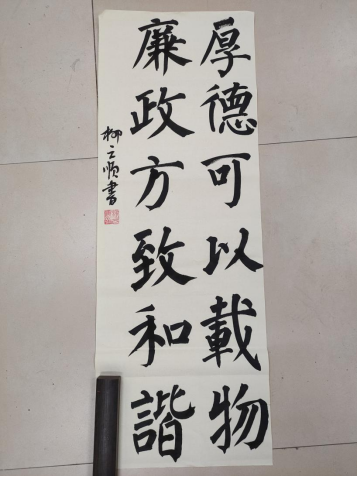 厚德可以載物
廉政方致和諧
柳云順書